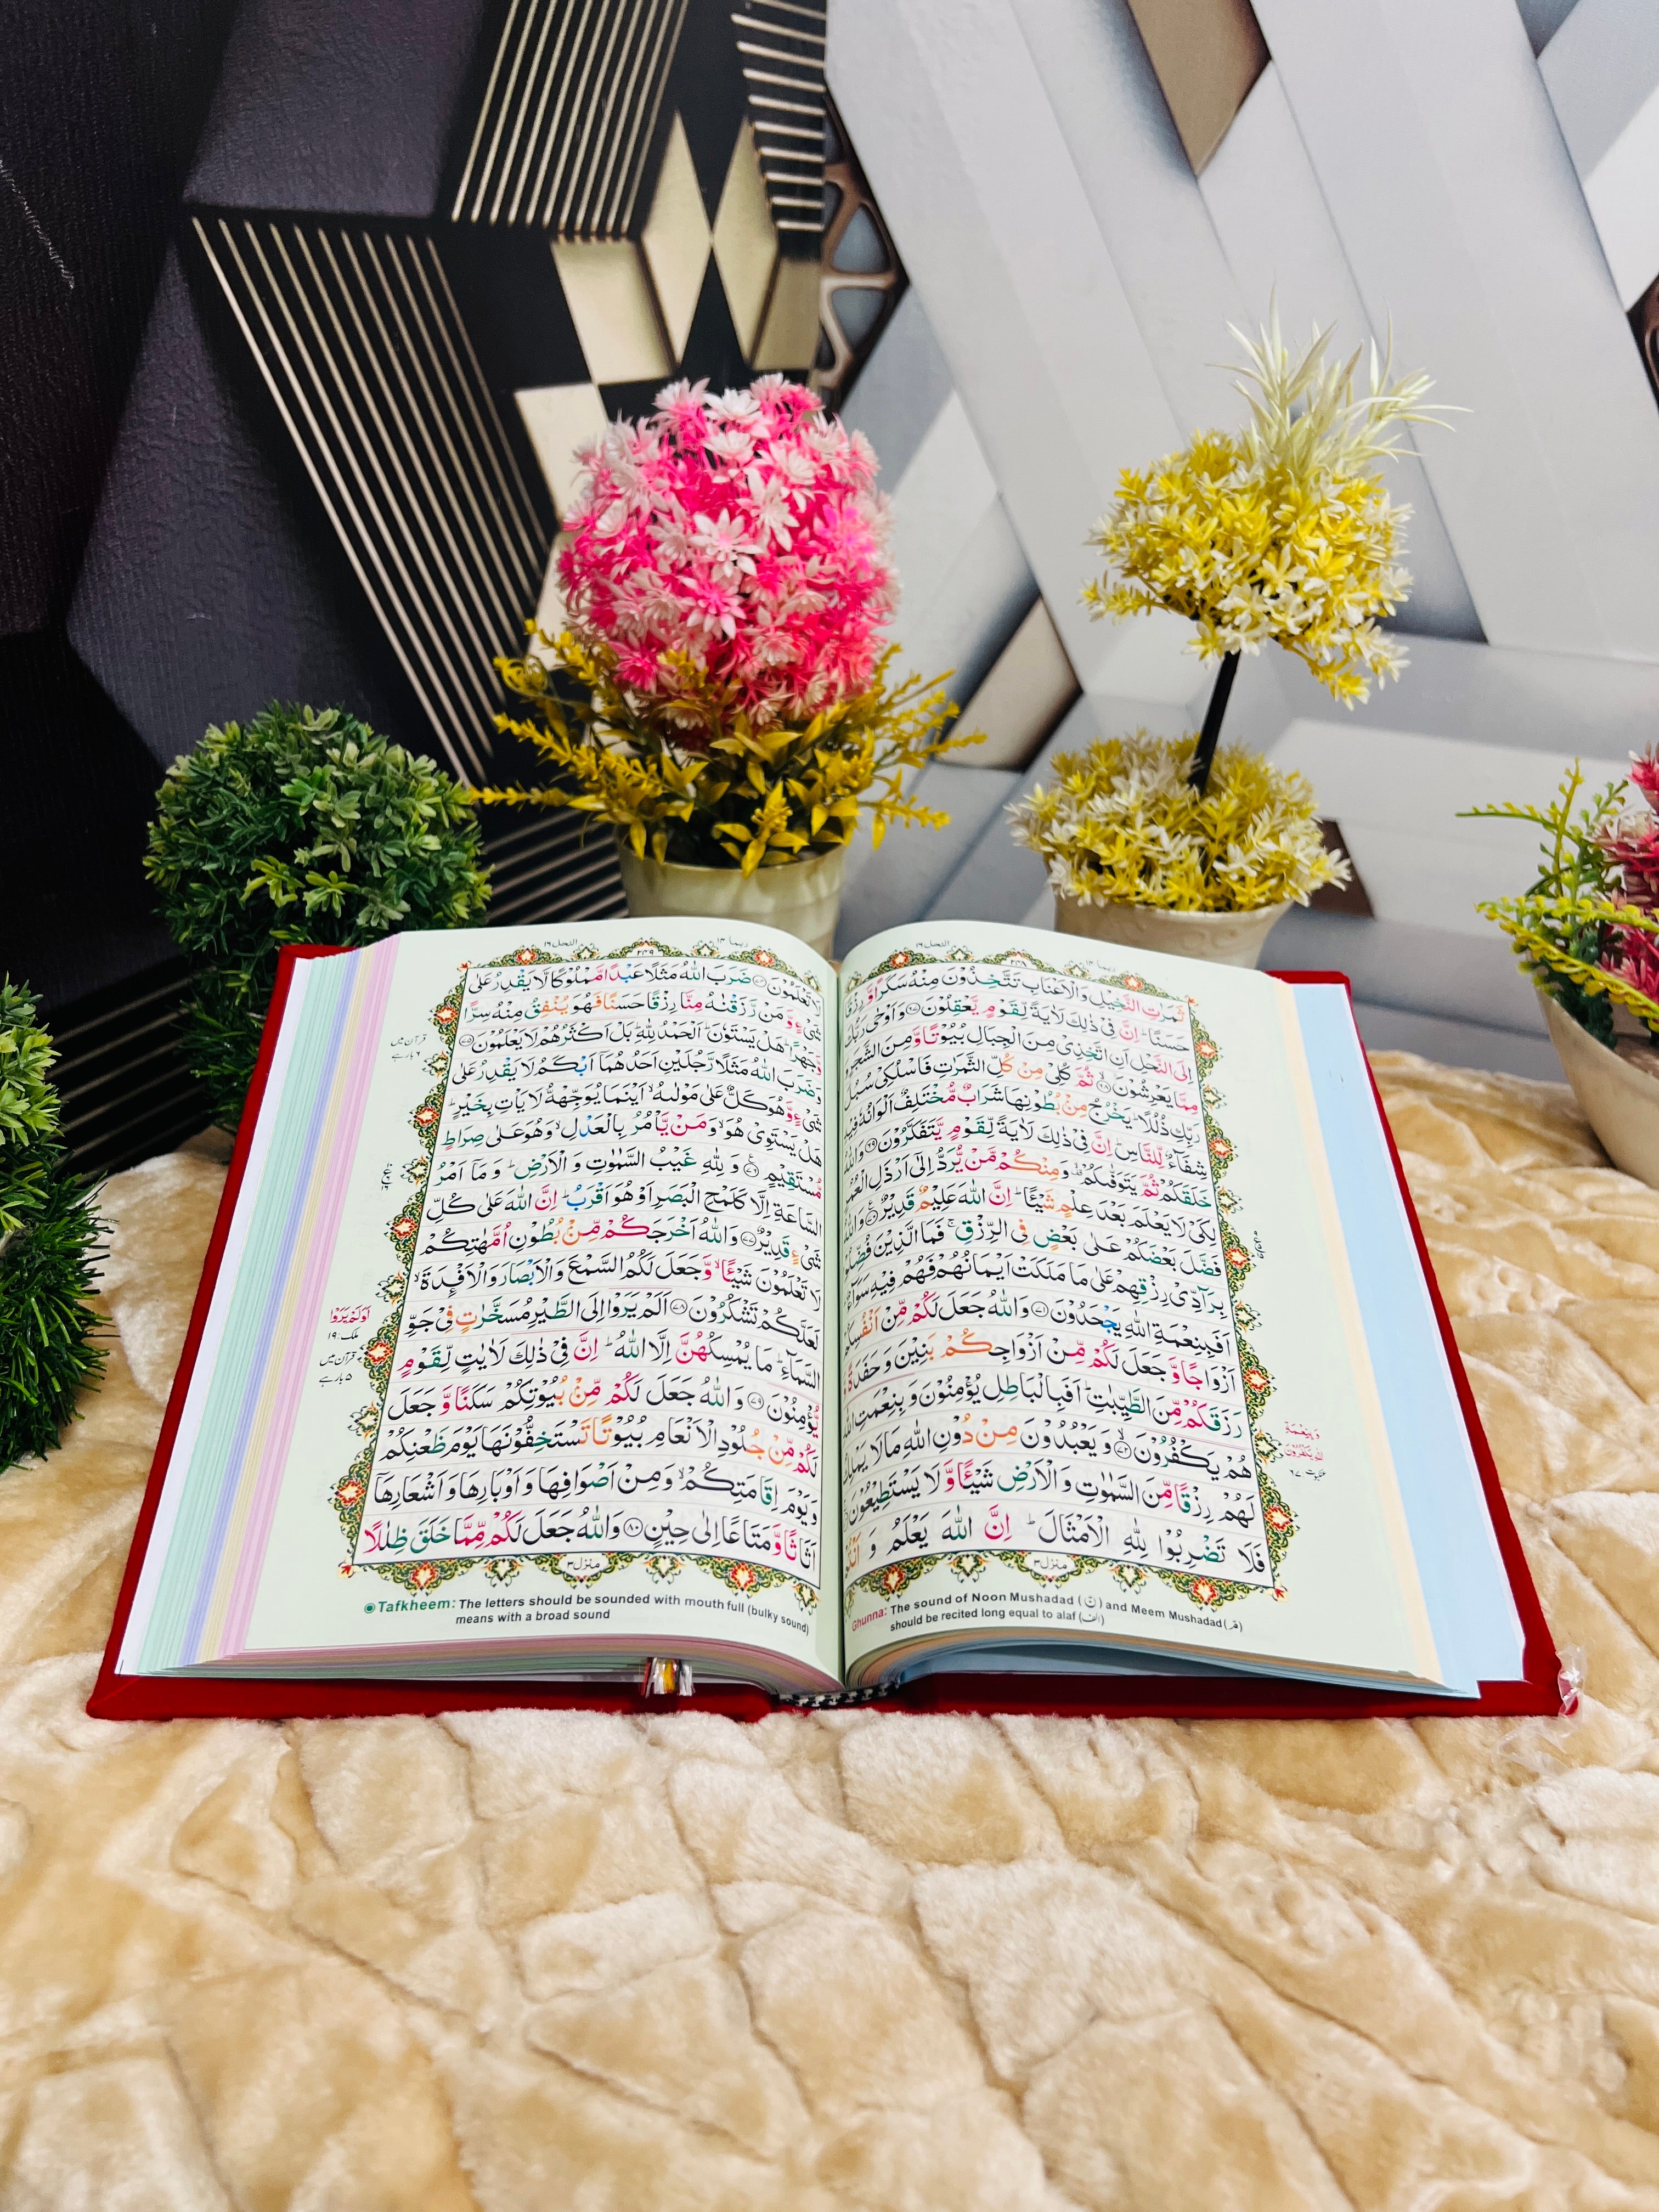 النحل ١٦
ربما ١٤
ثَمَرٰتِ النَّخِيْلِ وَالْاَعْنَابِ تَتَّخِذُوْنَ مِنْهُ سَكَرًا وَّ رِزْقًا
حَسَنًا ؕ اِنَّ فِيْ ذٰلِكَ لَاٰيَةً لِّقَوْمٍ يَّعْقِلُوْنَ ﴿۶۷﴾ وَ اَوْحٰى رَبُّكَ
اِلَى النَّحْلِ اَنِ اتَّخِذِيْ مِنَ الْجِبَالِ بُيُوْتًا وَّ مِنَ الشَّجَرِ
مِمَّا يَعْرِشُوْنَ ﴿۶۸﴾ ثُمَّ كُلِيْ مِنْ كُلِّ الثَّمَرٰتِ فَاسْلُكِيْ سُبُلَ
رَبِّكِ ذُلُلًا ؕ يَخْرُجُ مِنْۢ بُطُوْنِهَا شَرَابٌ مُّخْتَلِفٌ اَلْوَانُهٗ فِيْهِ
شِفَآءٌ لِّلنَّاسِ ؕ اِنَّ فِيْ ذٰلِكَ لَاٰيَةً لِّقَوْمٍ يَّتَفَكَّرُوْنَ ﴿۶۹﴾ وَاللّٰهُ
خَلَقَكُمْ ثُمَّ يَتَوَفّٰىكُمْ وَمِنْكُمْ مَّنْ يُّرَدُّ اِلٰٓى اَرْذَلِ الْعُمُرِ
لِكَيْ لَا يَعْلَمَ بَعْدَ عِلْمٍ شَيْـًٔا ؕ اِنَّ اللّٰهَ عَلِيْمٌ قَدِيْرٌ ﴿۷۰﴾ وَاللّٰهُ
فَضَّلَ بَعْضَكُمْ عَلٰى بَعْضٍ فِي الرِّزْقِ ۚ فَمَا الَّذِيْنَ فُضِّلُوْا
بِرَآدِّيْ رِزْقِهِمْ عَلٰى مَا مَلَكَتْ اَيْمَانُهُمْ فَهُمْ فِيْهِ سَوَآءٌ
اَفَبِنِعْمَةِ اللّٰهِ يَجْحَدُوْنَ ﴿۷۱﴾ وَاللّٰهُ جَعَلَ لَكُمْ مِّنْ اَنْفُسِكُمْ
اَزْوَاجًا وَّ جَعَلَ لَكُمْ مِّنْ اَزْوَاجِكُمْ بَنِيْنَ وَ حَفَدَةً
رَزَقَكُمْ مِّنَ الطَّيِّبٰتِ ؕ اَفَبِالْبَاطِلِ يُؤْمِنُوْنَ وَ بِنِعْمَتِ اللّٰهِ
هُمْ يَكْفُرُوْنَ ﴿۷۲﴾ وَ يَعْبُدُوْنَ مِنْ دُوْنِ اللّٰهِ مَا لَا يَمْلِكُ
لَهُمْ رِزْقًا مِّنَ السَّمٰوٰتِ وَ الْاَرْضِ شَيْـًٔا وَّ لَا يَسْتَطِيْعُوْنَ
فَلَا تَضْرِبُوْا لِلّٰهِ الْاَمْثَالَ ؕ اِنَّ اللّٰهَ يَعْلَمُ وَ اَنْتُمْ
منزل ٣
Ghunna: The sound of Noon Mushadad (نّ) and Meem Mushadad (مّ)
should be recited long equal to alaf (الف)
النحل ١٦
ربما ١٤
لَا تَعْلَمُوْنَ ﴿۷۴﴾ ضَرَبَ اللّٰهُ مَثَلًا عَبْدًا مَّمْلُوْكًا لَّا يَقْدِرُ عَلٰى
شَيْءٍ وَّ مَنْ رَّزَقْنٰهُ مِنَّا رِزْقًا حَسَنًا فَهُوَ يُنْفِقُ مِنْهُ سِرًّا
وَّ جَهْرًا ؕ هَلْ يَسْتَوٗنَ ؕ اَلْحَمْدُ لِلّٰهِ ؕ بَلْ اَكْثَرُهُمْ لَا يَعْلَمُوْنَ ﴿۷۵﴾
وَضَرَبَ اللّٰهُ مَثَلًا رَّجُلَيْنِ اَحَدُهُمَاۤ اَبْكَمُ لَا يَقْدِرُ عَلٰى
شَيْءٍ وَّ هُوَ كَلٌّ عَلٰى مَوْلٰىهُ ۙ اَيْنَمَا يُوَجِّهْهُّ لَا يَاْتِ بِخَيْرٍ ؕ
هَلْ يَسْتَوِيْ هُوَ ۙ وَ مَنْ يَّاْمُرُ بِالْعَدْلِ ۙ وَهُوَ عَلٰى صِرَاطٍ
مُّسْتَقِيْمٍ ﴿۷۶﴾ وَ لِلّٰهِ غَيْبُ السَّمٰوٰتِ وَ الْاَرْضِ ؕ وَ مَاۤ اَمْرُ
السَّاعَةِ اِلَّا كَلَمْحِ الْبَصَرِ اَوْ هُوَ اَقْرَبُ ؕ اِنَّ اللّٰهَ عَلٰى كُلِّ
شَيْءٍ قَدِيْرٌ ﴿۷۷﴾ وَاللّٰهُ اَخْرَجَكُمْ مِّنْۢ بُطُوْنِ اُمَّهٰتِكُمْ
لَا تَعْلَمُوْنَ شَيْـًٔا ۙ وَّ جَعَلَ لَكُمُ السَّمْعَ وَالْاَبْصَارَ وَالْاَفْـِٕدَةَ ۙ
لَعَلَّكُمْ تَشْكُرُوْنَ ﴿۷۸﴾ اَلَمْ يَرَوْا اِلَى الطَّيْرِ مُسَخَّرٰتٍ فِيْ جَوِّ
السَّمَآءِ ؕ مَا يُمْسِكُهُنَّ اِلَّا اللّٰهُ ؕ اِنَّ فِيْ ذٰلِكَ لَاٰيٰتٍ لِّقَوْمٍ
يُّؤْمِنُوْنَ ﴿۷۹﴾ وَ اللّٰهُ جَعَلَ لَكُمْ مِّنْۢ بُيُوْتِكُمْ سَكَنًا وَّ جَعَلَ
لَكُمْ مِّنْ جُلُوْدِ الْاَنْعَامِ بُيُوْتًا تَسْتَخِفُّوْنَهَا يَوْمَ ظَعْنِكُمْ
وَيَوْمَ اِقَامَتِكُمْ ۙ وَ مِنْ اَصْوَافِهَا وَ اَوْبَارِهَا وَ اَشْعَارِهَاۤ
اَثَاثًا وَّ مَتَاعًا اِلٰى حِيْنٍ ﴿۸۰﴾ وَاللّٰهُ جَعَلَ لَكُمْ مِّمَّا خَلَقَ ظِلٰلًا
منزل ٣
Tafkheem: The letters should be sounded with mouth full (bulky sound)
means with a broad sound